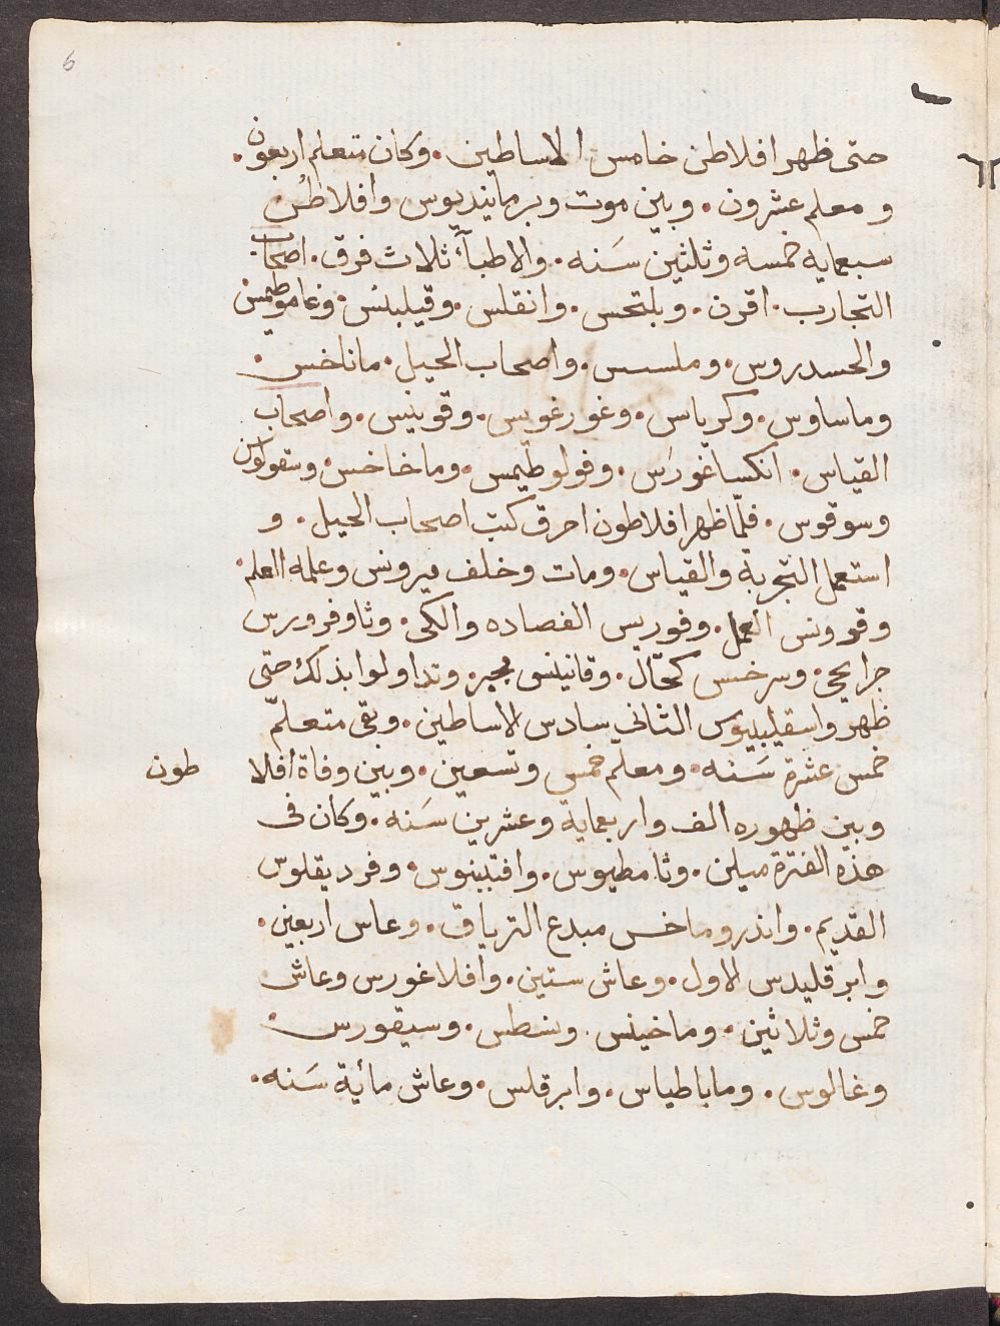 6
حتى ظهر افلاطن خامس الاساطين. وكان متعلم اربعون.
و معلم عشرون. وبين موت وبرمانيديوس وافلاطن
سبعمايه خمسه وثلثين سَنه. والاطبآء ثلاث فرق. اصحاب
التجارب. اقرن. وبلتخس. وانقلس. وقيلبنس. وغاموطيمس
والحسدروس. وملسس. واصحاب الحيل. ماناخس.
وماساوس. وكرياس. وغورغويس. وقونيس. واصحاب
القياس. انكساغورس. وفولوطيمس. وماخاخس. وسقولوس
وسوقوس. فلمّا ظهر افلاطون احرق كتب اصحاب الحيل. و
استعمل التجربة والقياس. ومات وخلف ميرونس وعلمه العلم.
وقورونس العمل. وفوريس الفصاده والكى. وثاوفرورس
جرايحى. وسرخس كحّال. وقانينس مجبر. وتداولوا بذلك حتى
ظهر واسقليبيوس الثاني سادس الاساطين. وبقى متعلمّ
خمس عشرة سَنه. ومعلم خمس وتسعين. وبين وفاة افلا طون
وبين ظهوره الف واربعماية وعشرين سَنه. وكان فى
هذه الفترة ميلن. وثامطيوس. وافتبينوس. وفرديقلوس
القديم. وانذروماخس مبدع الترياق. وعاس اربعين.
وابرقليدس الاول. وعاش ستين. وافلاغورس وعاش
خمس وثلاثين. وماخينس. ونسطس. وسيقورس.
وغالوس. وماباطياس. وابرقلس. وعاش مائية سَنه.